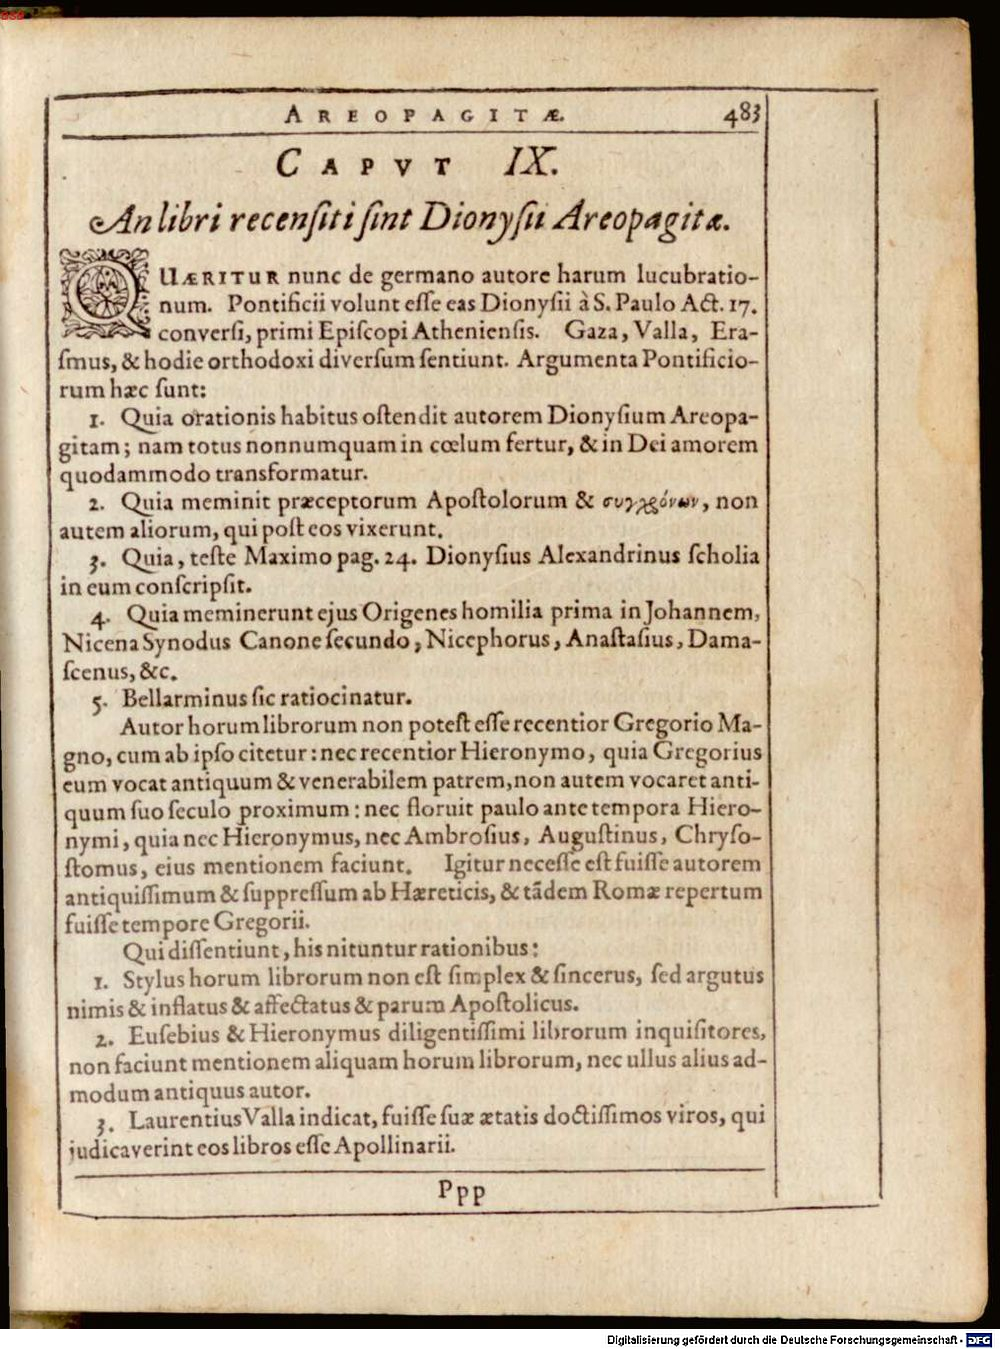 AREOPAGITÆ. 483
CAPVT IX.
An libri recensiti sint Dionysii Areopagitæ.
QUÆRITUR nunc de germano autore harum lucubratio-
num. Pontificii volunt esse eas Dionysii à S. Paulo Act. 17.
conversi, primi Episcopi Atheniensis. Gaza, Valla, Era-
smus, & hodie orthodoxi diversum sentiunt. Argumenta Pontificio-
rum hæc sunt:
1. Quia orationis habitus ostendit autorem Dionysium Areopa-
gitam; nam totus nonnumquam in cœlum fertur, & in Dei amorem
quodammodo transformatur.
2. Quia meminit præceptorum Apostolorum & συγχρόνων, non
autem aliorum, qui post eos vixerunt.
3. Quia, teste Maximo pag. 24. Dionysius Alexandrinus scholia
in eum conscripsit.
4. Quia meminerunt ejus Origenes homilia prima in Johannem,
Nicena Synodus Canone secundo, Nicephorus, Anastasius, Dama-
scenus, &c.
5. Bellarminus sic ratiocinatur.
Autor horum librorum non potest esse recentior Gregorio Ma-
gno, cum ab ipso citetur: nec recentior Hieronymo, quia Gregorius
eum vocat antiquum & venerabilem patrem, non autem vocaret anti-
quum suo seculo proximum: nec floruit paulo ante tempora Hiero-
nymi, quia nec Hieronymus, nec Ambrosius, Augustinus, Chryso-
stomus, eius mentionem faciunt. Igitur necesse est fuisse autorem
antiquissimum & suppressum ab Hæreticis, & tãdem Romæ repertum
fuisse tempore Gregorii.
Qui dissentiunt, his nituntur rationibus:
1. Stylus horum librorum non est simplex & sincerus, sed argutus
nimis & inflatus & affectatus & parum Apostolicus.
2. Eusebius & Hieronymus diligentissimi librorum inquisitores,
non faciunt mentionem aliquam horum librorum, nec ullus alius ad-
modum antiquus autor.
3. Laurentius Valla indicat, fuisse suæ ætatis doctissimos viros, qui
judicaverint eos libros esse Apollinarii.
Ppp
Digitalisierung gefördert durch die Deutsche Forschungsgemeinschaft - DFG